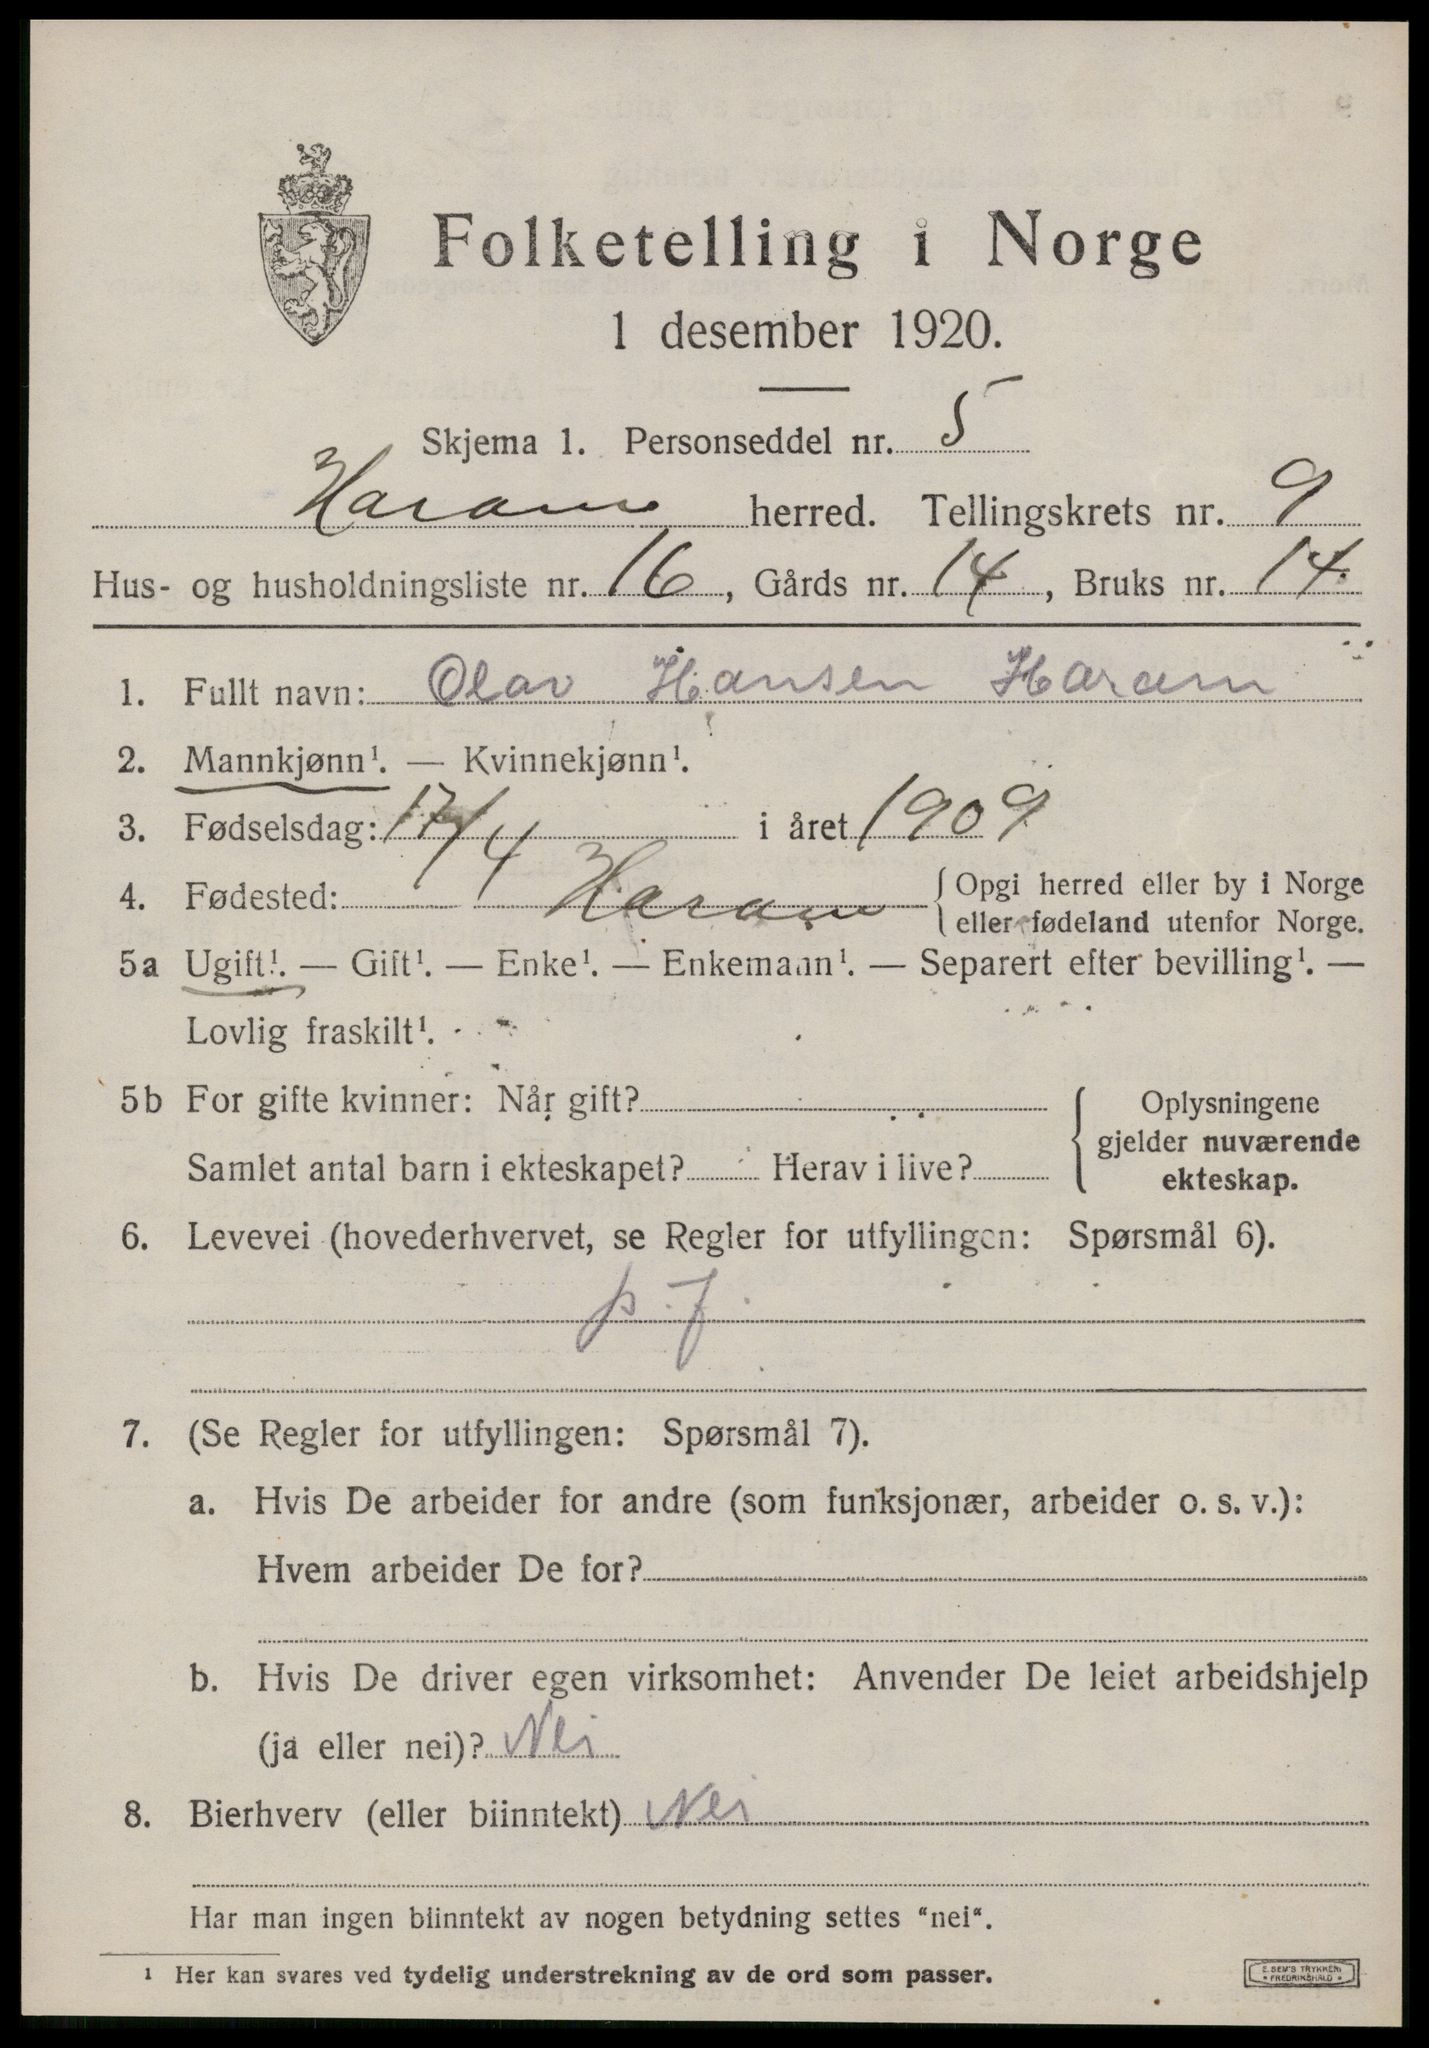 Folketelling i Norge
1 desember 1920.
Skjema 1. Personseddel nr. 5
Haram herred. Tellingskrets nr. 9
Hus- og husholdningsliste nr. 16, Gårds nr. 14, Bruks nr. 14.
1. Fullt navn: Olav Hansen Haram
2. Mannkjønn¹. — Kvinnekjønn¹.
3. Fødselsdag: 17/4 i året 1909
4. Fødested: Haram { Opgi herred eller by i Norge
eller fødeland utenfor Norge.
5a Ugift¹. — Gift¹. — Enke¹. — Enkemann¹. — Separert efter bevilling¹. —
Lovlig fraskilt¹.
5b For gifte kvinner: Når gift?
Samlet antal barn i ekteskapet? Herav i live?
{ Oplysningene
gjelder nuværende
ekteskap.
6. Levevei (hovederhvervet, se Regler for utfyllingen: Spørsmål 6).
p. f.
7. (Se Regler for utfyllingen: Spørsmål 7).
a. Hvis De arbeider for andre (som funksjonær, arbeider o. s. v.):
Hvem arbeider De for?
b. Hvis De driver egen virksomhet: Anvender De leiet arbeidshjelp
(ja eller nei)? Nei
8. Bierhverv (eller biinntekt) Nei
Har man ingen biinntekt av nogen betydning settes "nei".
¹ Her kan svares ved tydelig understrekning av de ord som passer.
E. SEM'S TRYKKERI
• FREDRIKSHALD •